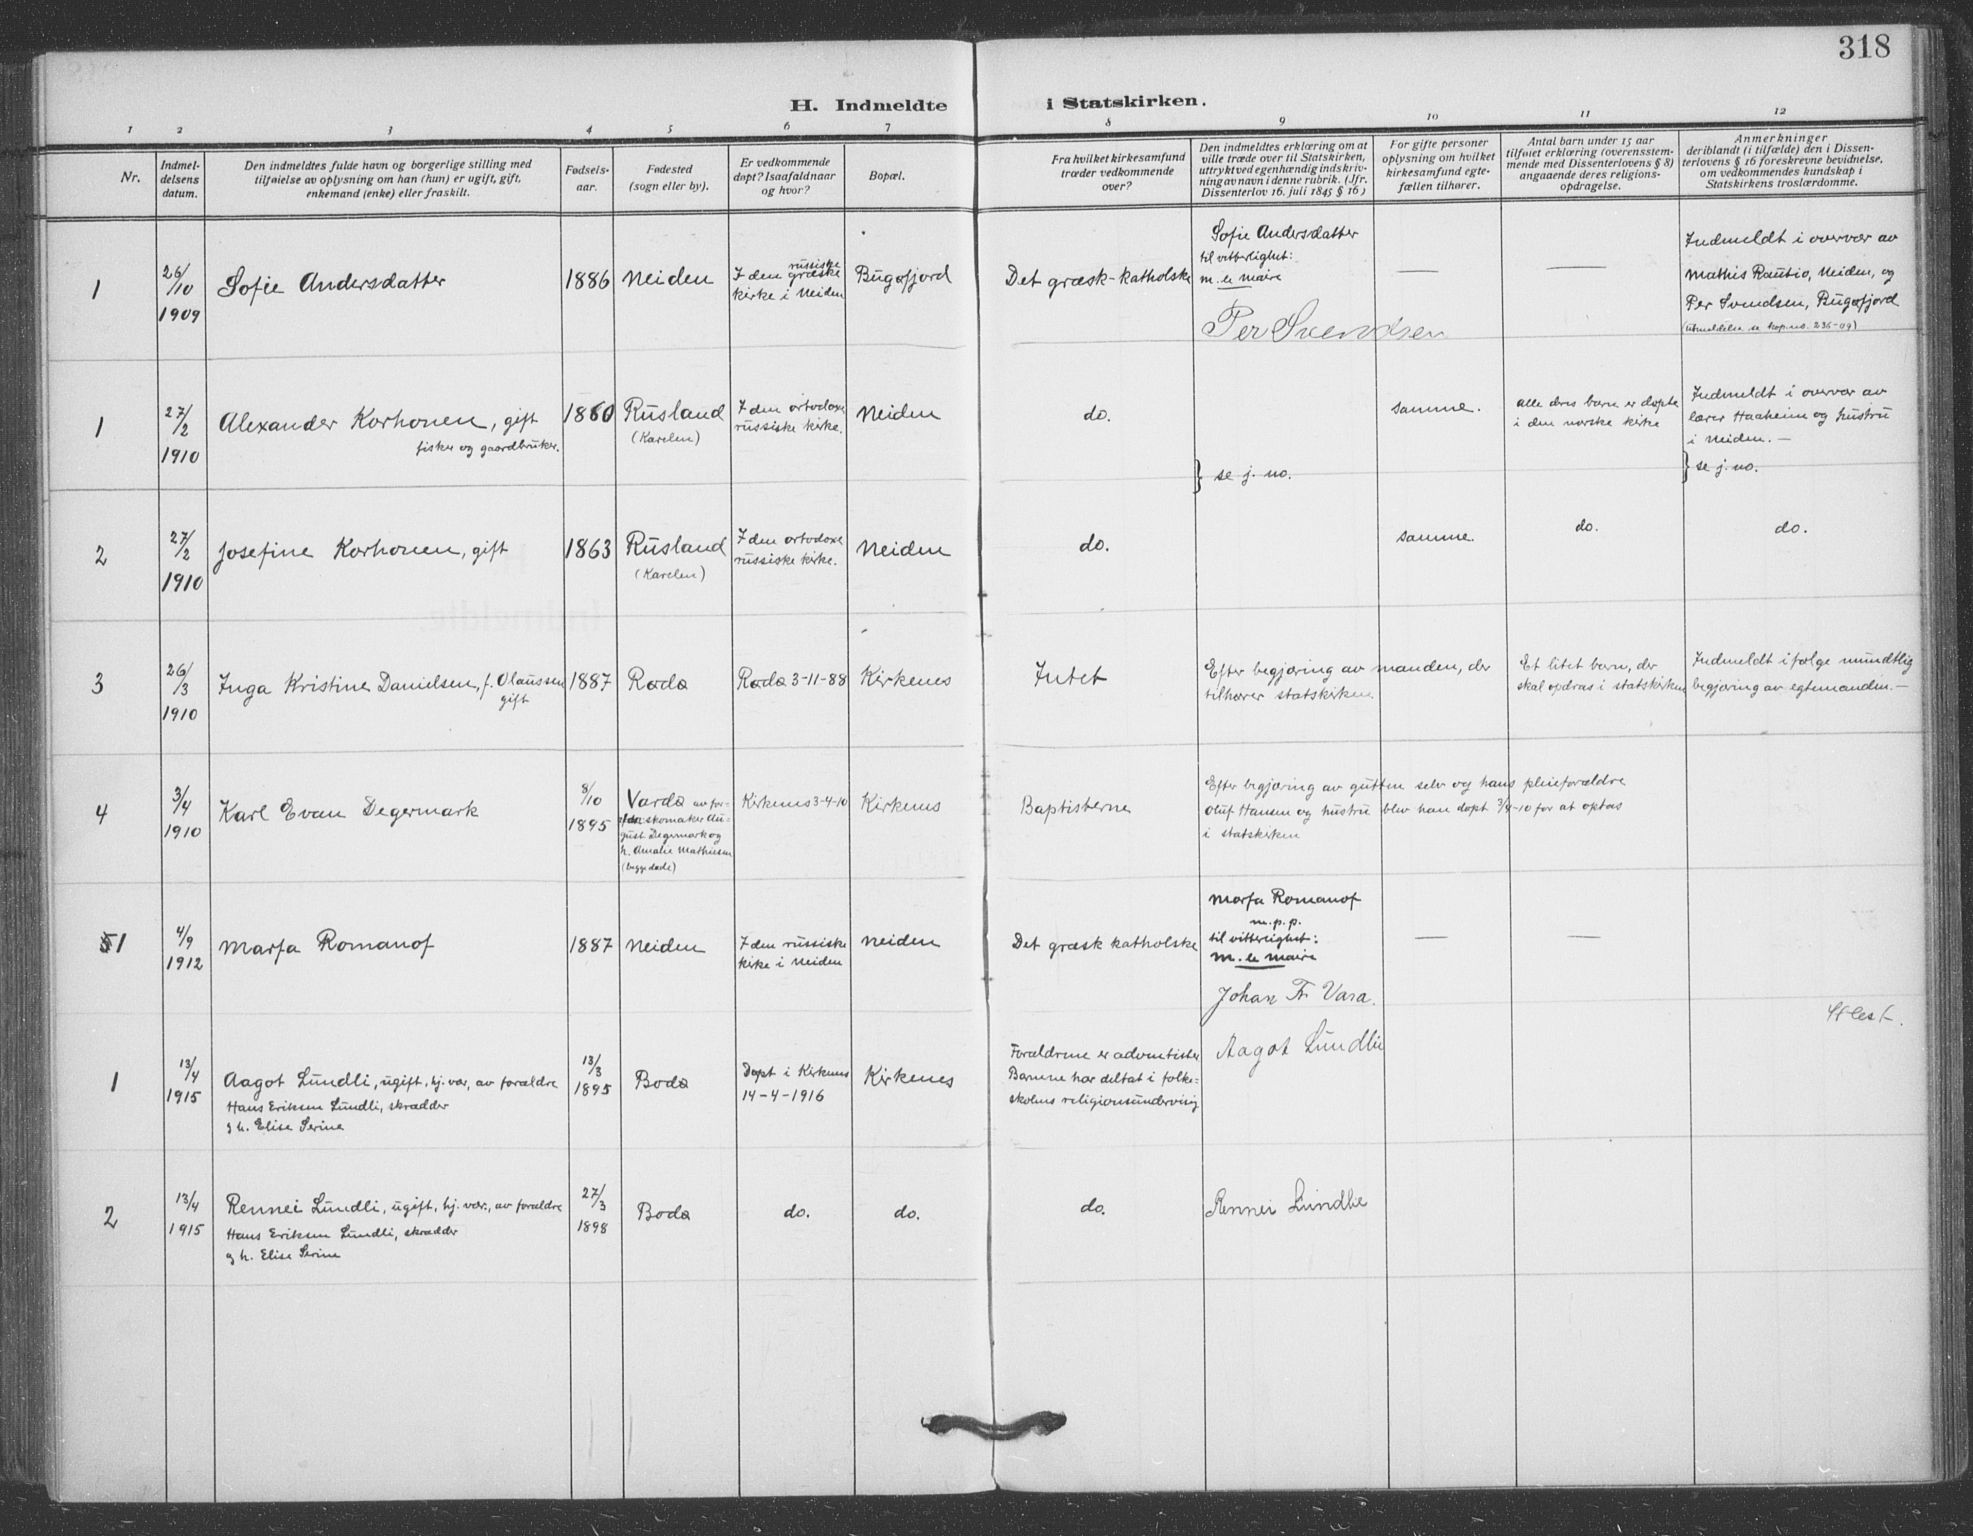 318
H. Indmeldte i Statskirken.
1 2 3 4 5 6 7 8 9 10 11 12
Nr.
Indmel-
delsens
datum.
Den indmeldtes fulde navn og borgerlige stilling med
tilføielse av oplysning om han (hun) er ugift, gift,
enkemand (enke) eller fraskilt.
Fødsels-
aar.
Fødested
(sogn eller by).
Er vedkommende
døpt? Isaafald naar
og hvor?
Bopæl.
Fra hvilket kirkesamfund
træder vedkommende
over?
Den indmeldtes erklæring om at
ville træde over til Statskirken,
uttrykt ved egenhændig indskriv-
ning av navn i denne rubrik. (Jfr.
Dissenterlov 16. juli 1845 § 16)
For gifte personer
oplysning om hvilket
kirkesamfund egte-
fællen tilhører.
Antal barn under 15 aar
tilføiet erklæring (overensstem-
mende med Dissenterlovens § 8)
angaaende deres religions-
opdragelse.
Anmerkninger
deriblandt (i tilfælde) den i Dissen-
terlovens § 16 foreskrevne bevidnelse,
om vedkommendes kundskap i
Statskirkens troslærdomme.
1
26/10
1909
Sofie Andersdatter
1886
Neiden
I den russiske
græske
kirke i Neiden
Bugøfjord
Det græsk-katholske
Sofie Andersdatter
til vitterlighet:
m. le Maire
Per Svendsen
—
—
Indmeldt i overvær av
Mathis Rautio, Neiden, og
Per Svendsen, Bugøfjord
(utmeldelse se kop.no. 236-09)
1
27/2
1910
Alexander Korhonen, gift
fisker og gaardbruker.
1860
Rusland
(Karelen)
I den ortodoxe
russiske kirke.
Neiden
do.
} se j. no.
samme.
alle dres barn er døpte
i den norske kirke
Indmeldt i overvær av
lærer Haaheim og hustru
i Neiden. —
} se j. no.
2
27/2
1910
Josefine Korhonen, gift
1863
Rusland
(Karelen)
I den ortodoxe
russiske kirke.
Neiden
do.
samme.
do.
do.
3
26/3
1910
Inga Kristine Danielsen, f. Olaussen
gift
1887
Rødø
Rødø 3-11-88
Kirkenes
Intet
Efter begjæring av manden, der
tilhører statskirken.
Et litet barn, der
skal opdras i statskirken
Indmeldt ifølge mundtlig
begjæring av egtemanden. —
4
3/4
1910
Karl Evan Degermark
8/10
1895
Vardø av for-
skomaker Au-
gust Degermark og
h. Amalie Mathiesen
(begge døde)
Kirkenes 3-4-10
Kirkenes
Baptisterne
Efter begjæring av gutten selv og hans pleieforældre
Oluf Hansen og hustru blev han døpt 3/4-10 for at optas
i statskirken
1
4/9
1912
Marfa Romanof
1887
Neiden
I den russiske
kirke i Neiden
Neiden
Det græsk katholske
Marfa Romanof
m. p. p.
til vitterlighet:
m. le Maire
Johan Fr. Vara.
—
—
1
13/4
1915
Aagot Lundli, ugift, hj. vær, av forældre
Hans Eriksen Lundli, skrædder
og h. Elise Serine
13/3
1895
Bodø
Døpt i Kirkenes
14-4-1916
Kirkenes
Forældrene er adventister
Barnene har deltat i folke-
skolens religionsundervisig
Aagot Lundlie
2
13/4
1915
Rennei Lundli, ugift, hj. vær., av forældre
Hans Eriksen Lundli, skrædder
og h. Elise Serine
27/3
1898
Bodø
do.
do.
do.
Rennei Lundlie